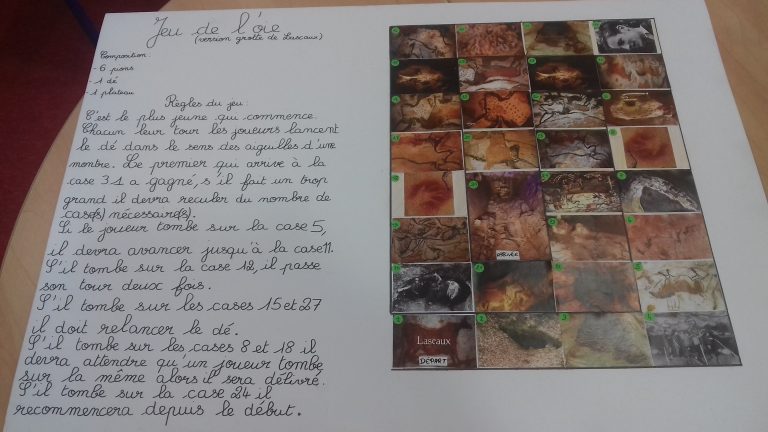 Jeu de l'oie
(version grotte de Lascaux)
Composition:
- 6 pions
- 1 dé
- 1 plateau
Règles du jeu:
C'est le plus jeune qui commence.
Chacun leur tour les joueurs lancent
le dé dans le sens des aiguilles d'une
montre. Le premier qui arrive à la
case 31 a gagné, s'il fait un trop
grand il devra reculer du nombre de
case(s) nécessaire(s).
Si le joueur tombe sur la case 5,
il devra avancer jusqu'à la case 11.
S'il tombe sur la case 12, il passe
son tour deux fois.
S'il tombe sur les cases 15 et 27
il doit relancer le dé.
S'il tombe sur les cases 8 et 18 il
devra attendre qu'un joueur tombe
sur la même alors il sera délivré.
S'il tombe sur la case 24 il
recommencera depuis le début.
Lascaux
DÉPART